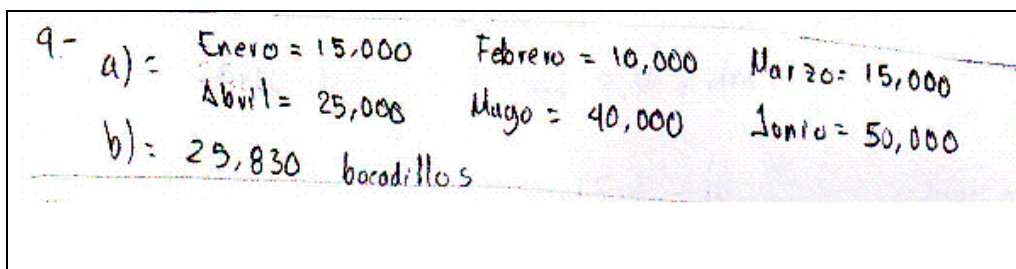 9.- a) = Enero = 15,000 Febrero = 10,000 Marzo = 15,000
Abril = 25,000 Mayo = 40,000 Junio = 50,000
b) = 25,830 bocadillos